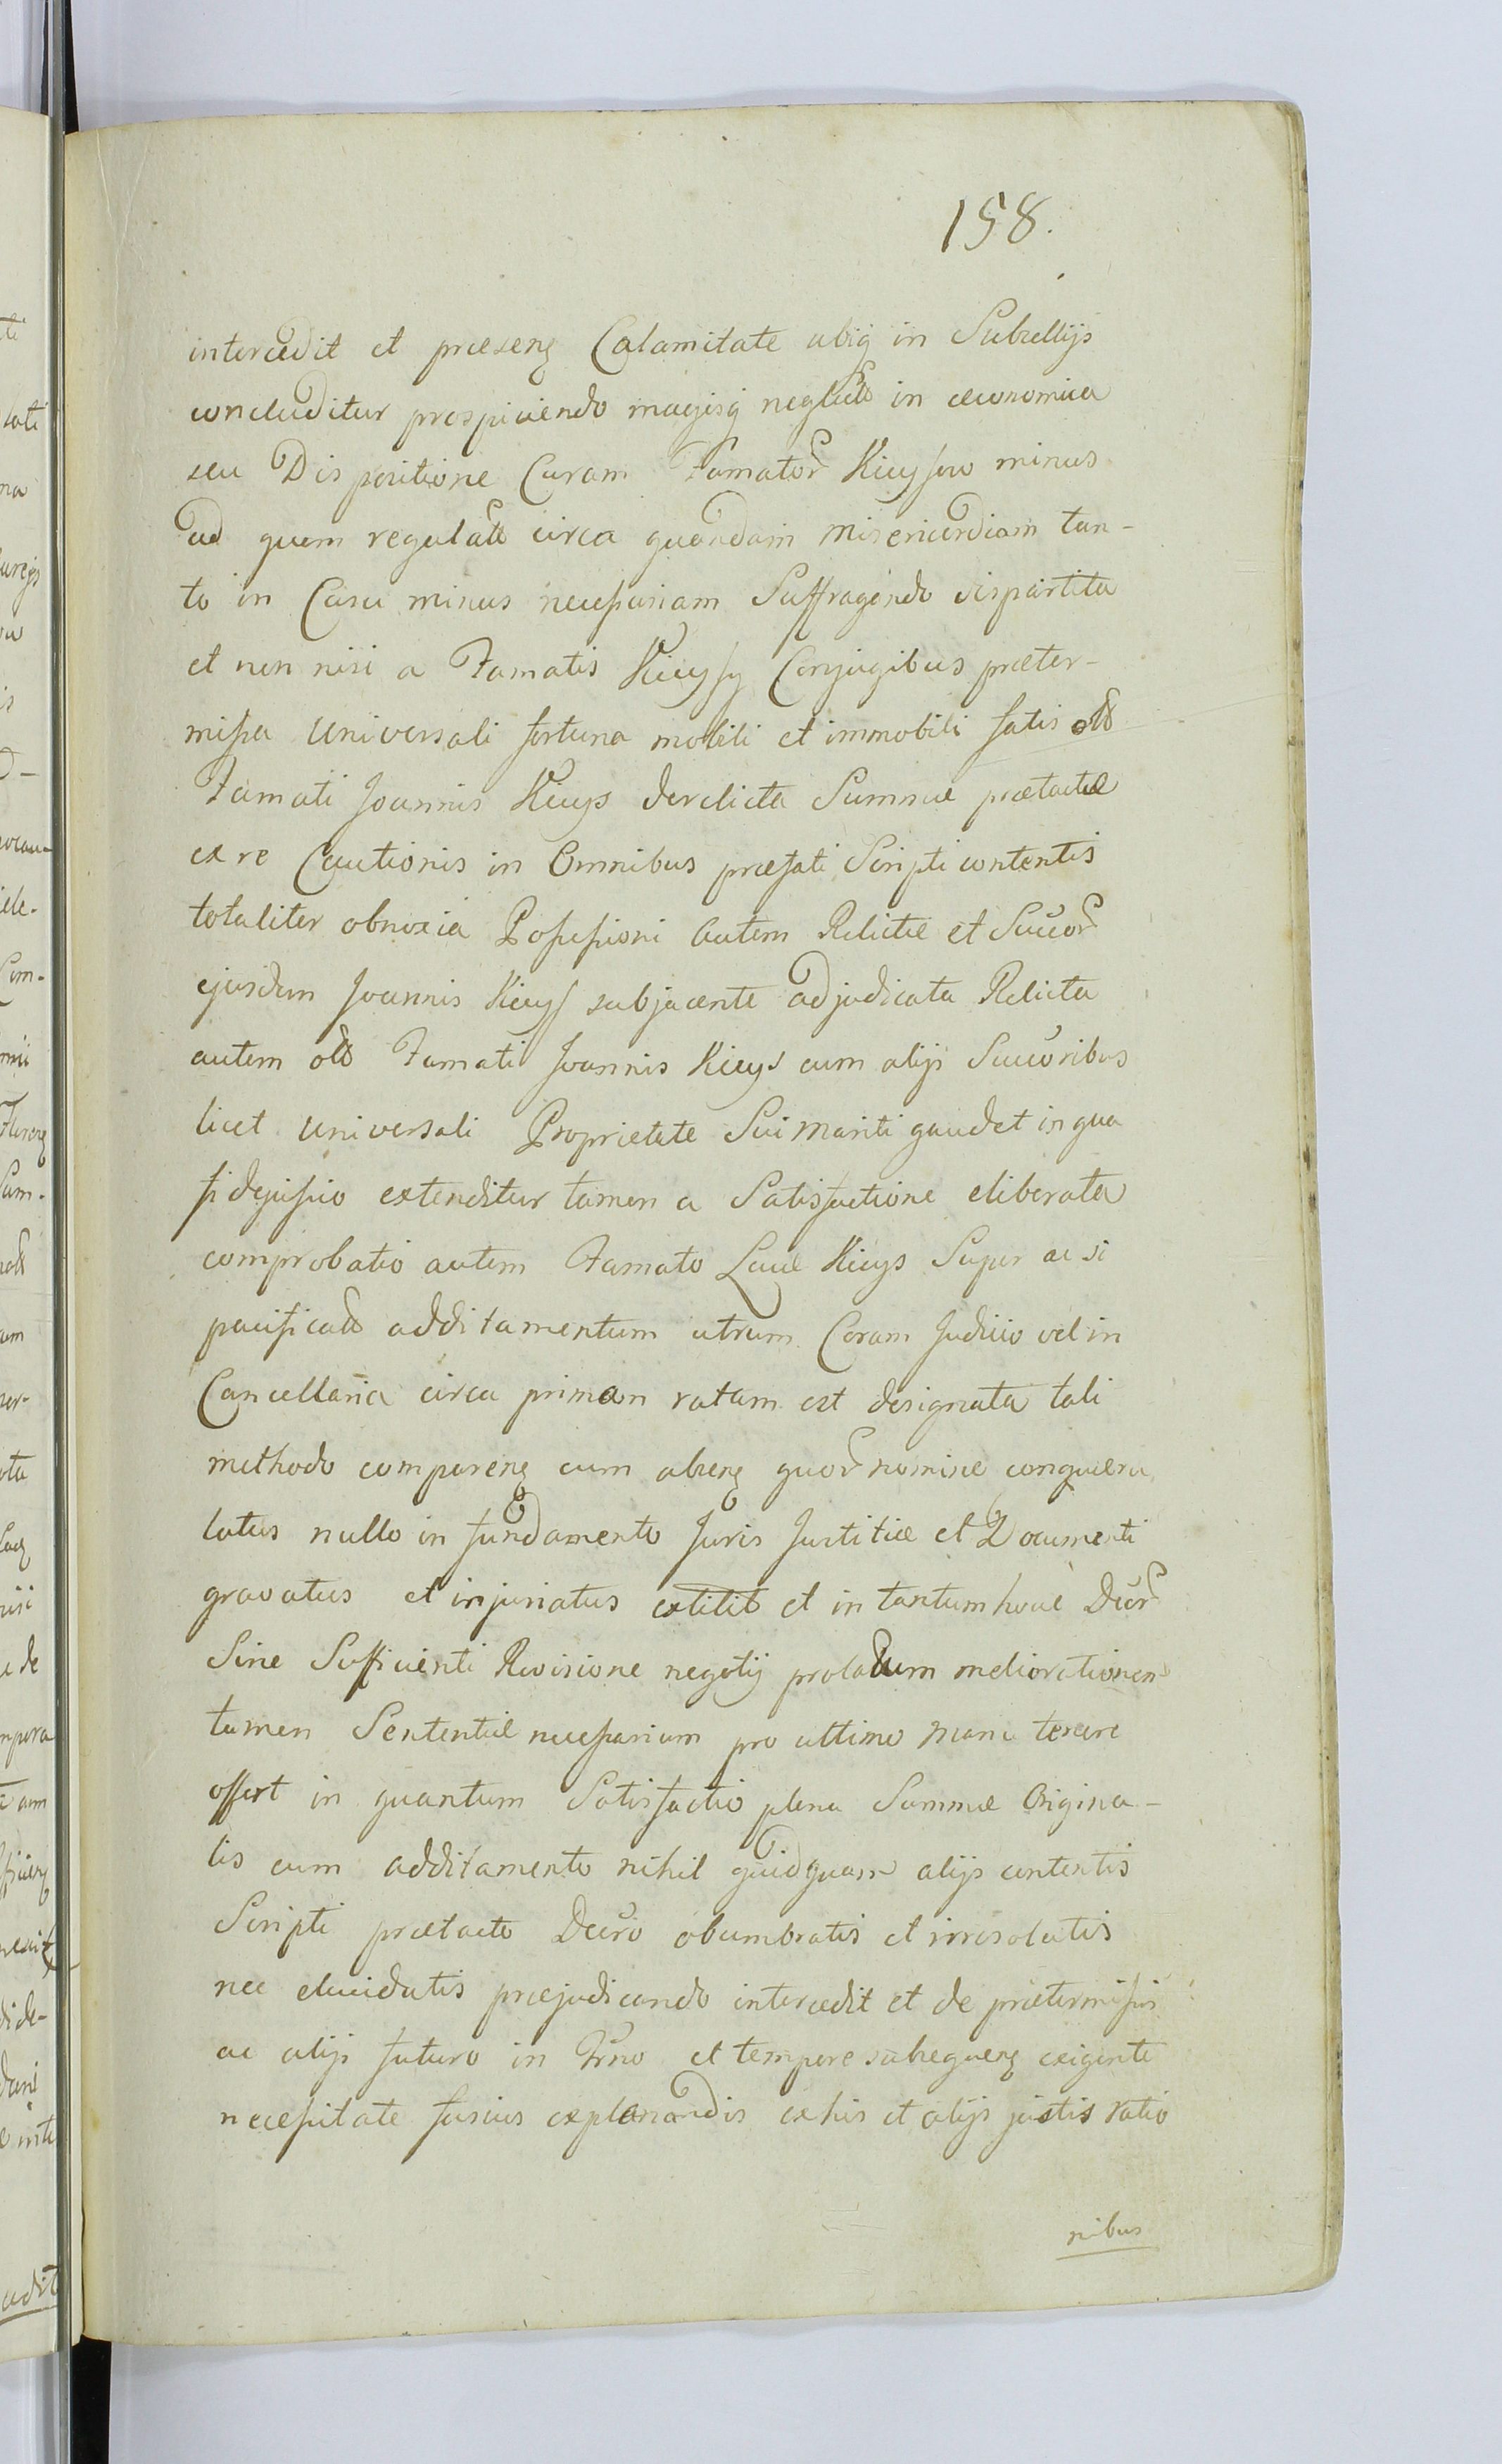 158.
intercedit et praesenq Calamitate ubiq in Subsellijs
concluditur prospiciendo magisq neglectu in oeconomica
seu Dispositione Curam Famator Kicysow minus
ad quem regulatu circa quandam misericordiam tan-
to in Casu minus necessariam Suffragando dispartita
et non nisi a Famatis Kicysy Conjugibus praeter-
missa universali fortuna mobili et immobili fatis
Famati Joannis Kicys derelicta Summae praetactae
ex re Cautionis in Omnibus praefati Scripti contentis
totaliter obnoxia Possessioni autem Relictae et Succor
ejusdem Joannis Kicys subjacente adjudicata Relicta
autem olb Famati Joannis Kicys cum alijs Succoribus
licet universali Proprietate Sui mariti gaudet in qua
fidejussio extenditur tamen a Satisfactione eliberata
comprobatio autem Famato Lucae Kicys Super ac si
pacificatu additamentum utrum Coram Judicio vel in
Cancellaria circa primam ratam est designata tali
methodo comparenq cum absenq quor nomine conquera
latus nullo in fundamento Juris Justitiae et Documenti
gravatus et injuriatus extitit et in tantum hocce Decr
Sine Sufficienti Revisione negotij prolatum meliorationem
tamen Sententiae necessarium pro ultimo mani tenere
offert in quantum Satisfactio plena Summae Origina-
lis cum additamento nihil quidquam alijs contentis
Scripti praetacto Decro obumbratis et irresolutis
nec elucidatis praejudicando intercedit et de praetermissis
ac alijs futuro in Trno et tempore subsequenq exigente
necessitate fusius explanandis ex his et alijs justis ratio
nibus